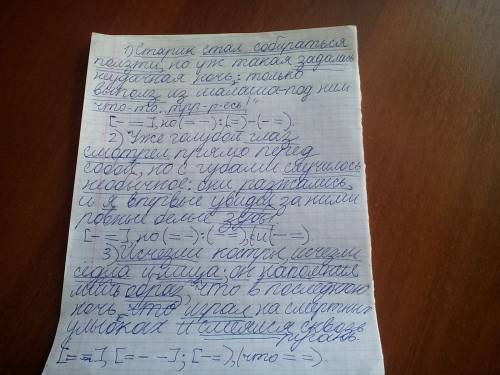 1) Старик стал собираться
ползти, но уж такая задалась
неудачная ночь: только
выполз из шалаша-под ним
что-то „трр-р-есь!"
[- =], но (= -) : (=) - (- =).
2) Уже голубой глаз
смотрел прямо перед
собой, но с губами случилось
необычное: они разжались,
и я впервые увидел за ними
ровные белые зубы
[- =], но (= -) : (- =), (и (- =)
3) Исчезли костры, исчезли
седла и лица; он напомнил
лишь образ, что в последнюю
ночь, что играл на смертных
улыбках и смеялся сквозь
[= -], [= - -]; [- =], (что = =).